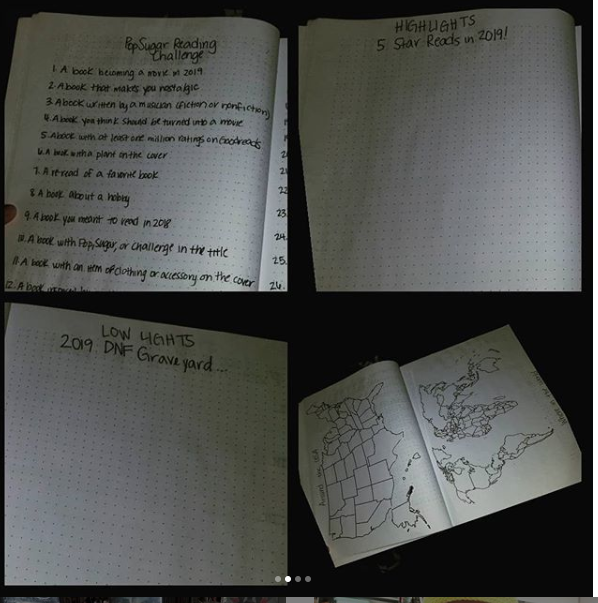 PopSugar Reading
Challenge
1. A book becoming a movie in 2019
2. A book that makes you nostalgic
3. A book written by a musician (fiction or nonfiction)
4. A book you think should be turned into a movie
5. A book with at least one million ratings on Goodreads
6. A book with a plant on the cover
7. A reread of a favorite book
8. A book about a hobby
9. A book you meant to read in 2018
10. A book with Pop, Sugar, or Challenge in the title
11. A book with an item of clothing or accessory on the cover
12. A book
20
21
22
23.
24.
25.
26.
HIGHLIGHTS
5 Star Reads in 2019!
LOW LIGHTS
2019 DNF Graveyard...